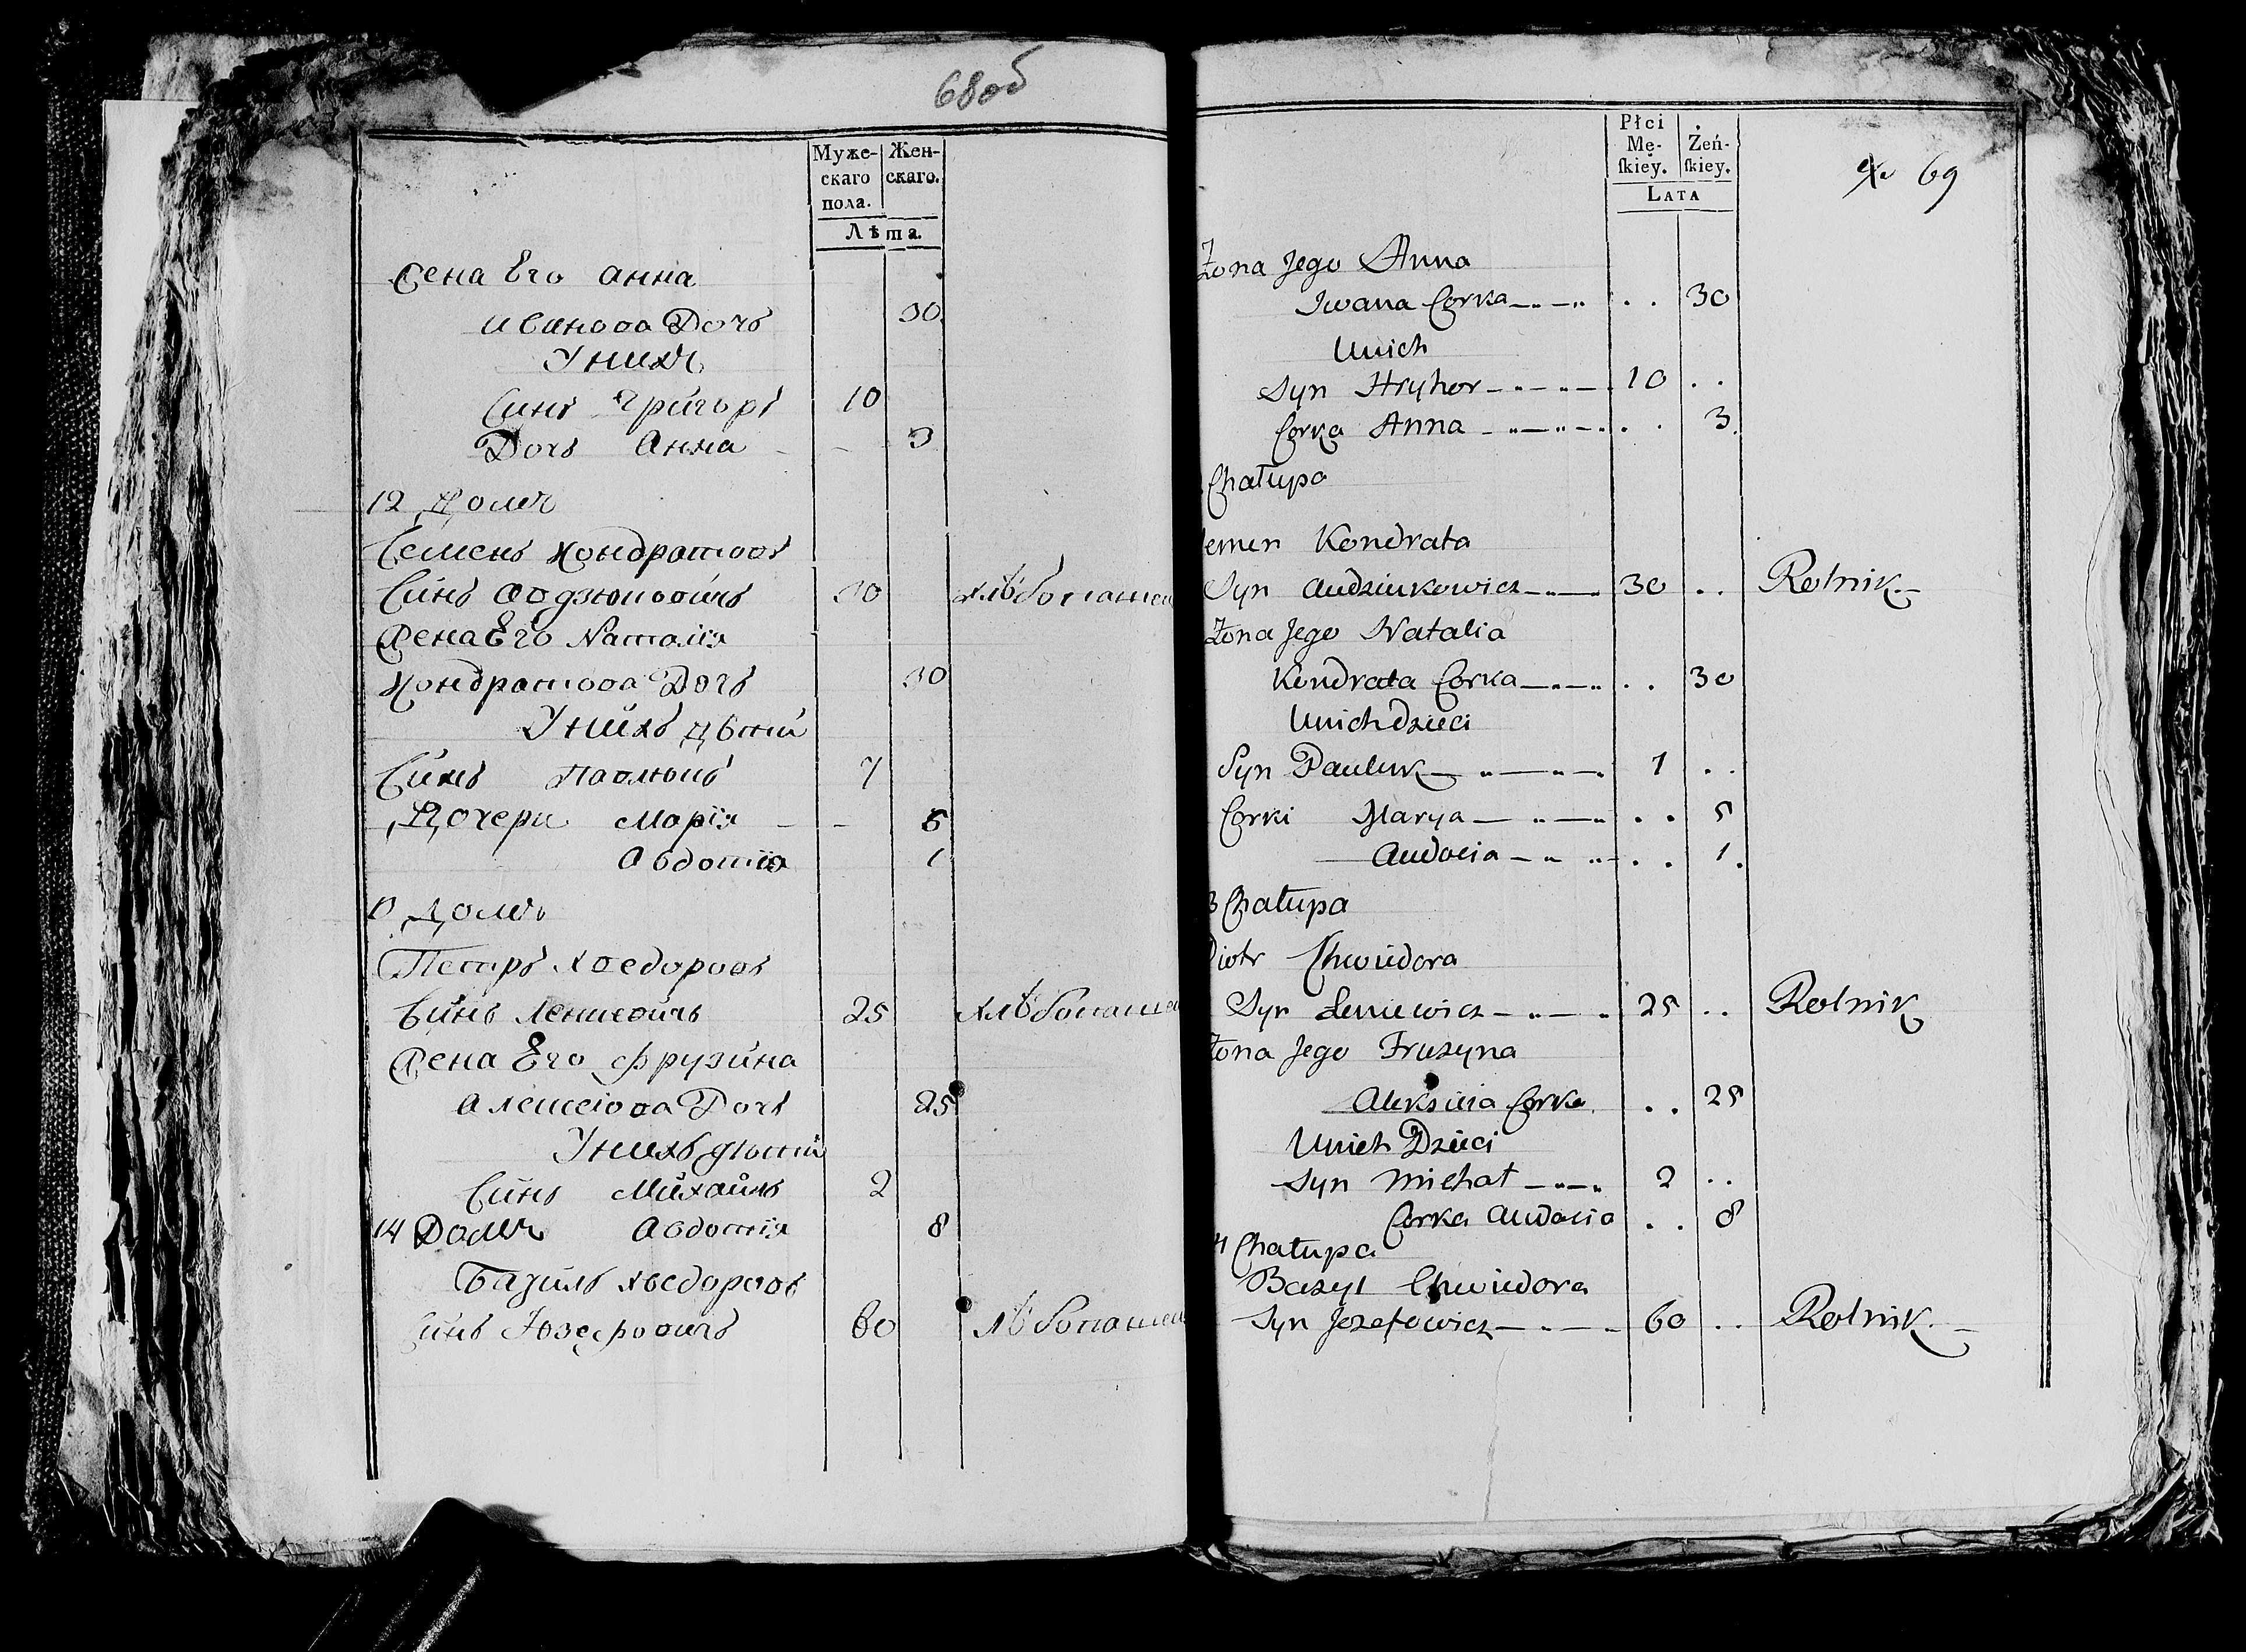 68об
Муже-
скаго
пола.
Жен-
скаго.
Лѣта.
Жена Его Анна
Иванова Дочь 30.
У нихъ
Синъ Григоръ 10
Дочь Анна - - 3
12 Домъ
Семенъ Кондратовъ
Синъ Авдзюковичъ 30 хлѣбопашец
Жена Его Наталія
Кондратова Дочь 30
У нихъ дѣти
Синъ Павлюкъ 7
Дочери Марія - - 5
Авдотія 1
Домъ
Петръ Хведоровъ
Синъ Леневичъ 25 хлѣбопаше
Жена Его Фрузина
Алексіова Дочь 25
У нихъ дѣти
Синъ Михаилъ 2
14 Домъ Авдотія 8
Базиль Хведоровъ
Синъ Юзефовичъ 60 хлѣбопашец
Płci
Mę-
ſkiey.
Żeń-
ſkiey.
LATA
69
Żona Jego Anna
Iwana Corka . . 30
Unich
Syn Hryhor 10 . .
Corka Anna . . 3.
Chałupa
emen Kondrata
Syn Audziukowicz 30 . . Rolnik
Żona Jego Natalia
Kondrata Corka . . 30
Unich dzieci
Syn Pauluk 7 . .
Corki Marya . . 5
Audocia . . 1.
3 Chałupa
Piotr Chwiedora
Syn Leniewicz 25 . . Rolnik
Żona Jego Fruzyna
Aleksieia Corka . . 25
Unich Dzieci
Syn Michał 2 . .
Corka Audocia . . 8
4 Chałupa
Bazyl Chwiedora
Syn Jozefowicz 60 . . Rolnik.